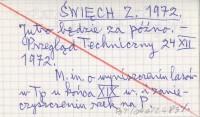 ŚWIĘCH Z. 1972.
Jutro będzie za późno. –
Przegląd Techniczny 24 XII
1972.
M. in o wyniszczeniu lasów
w Tp u końca XIX w. a zanie-
czyszczeniu rzek na P.